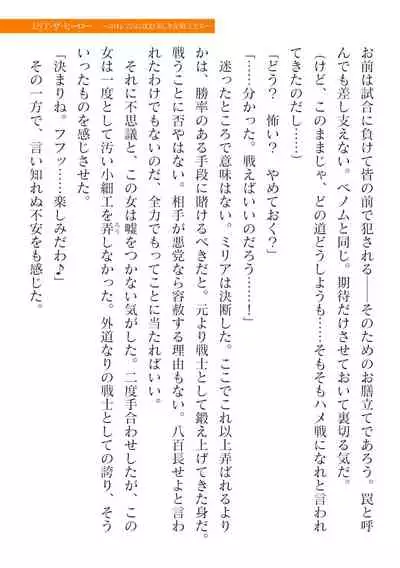 お前は試合に負けて皆の前で犯される――そのためのお膳立てであろう。罠と呼
んでも差し支えない。ベノムと同じ。期待だけさせておいて裏切る気だ。
(けど、このままじゃ、どの道どうしようも……そもそもハメ戦になれと言われ
てきたのだし……)
「どう？　怖い？　やめておく？」
「……分かった。戦えばいいのだろう……！」
迷ったところで意味はない。ミリアは決断した。ここでこれ以上弄ばれるより
かは、勝率のある手段に賭けるべきだと。元より戦士として鍛え上げてきた身だ。
戦うことに否やはない。相手が悪党なら容赦する理由もない。八百長せよと言わ
れたわけでもないのだ、全力でもってことに当たればいい。
それに不思議と、この女は嘘をつかない気がした。二度手合わせしたが、この
女は一度として汚い小細工を弄しなかった。外道なりの戦士としての誇り、そう
いったものを感じさせた。
「決まりね。フフッ……楽しみだわ♪」
その一方で、言い知れぬ不安をも感じた。